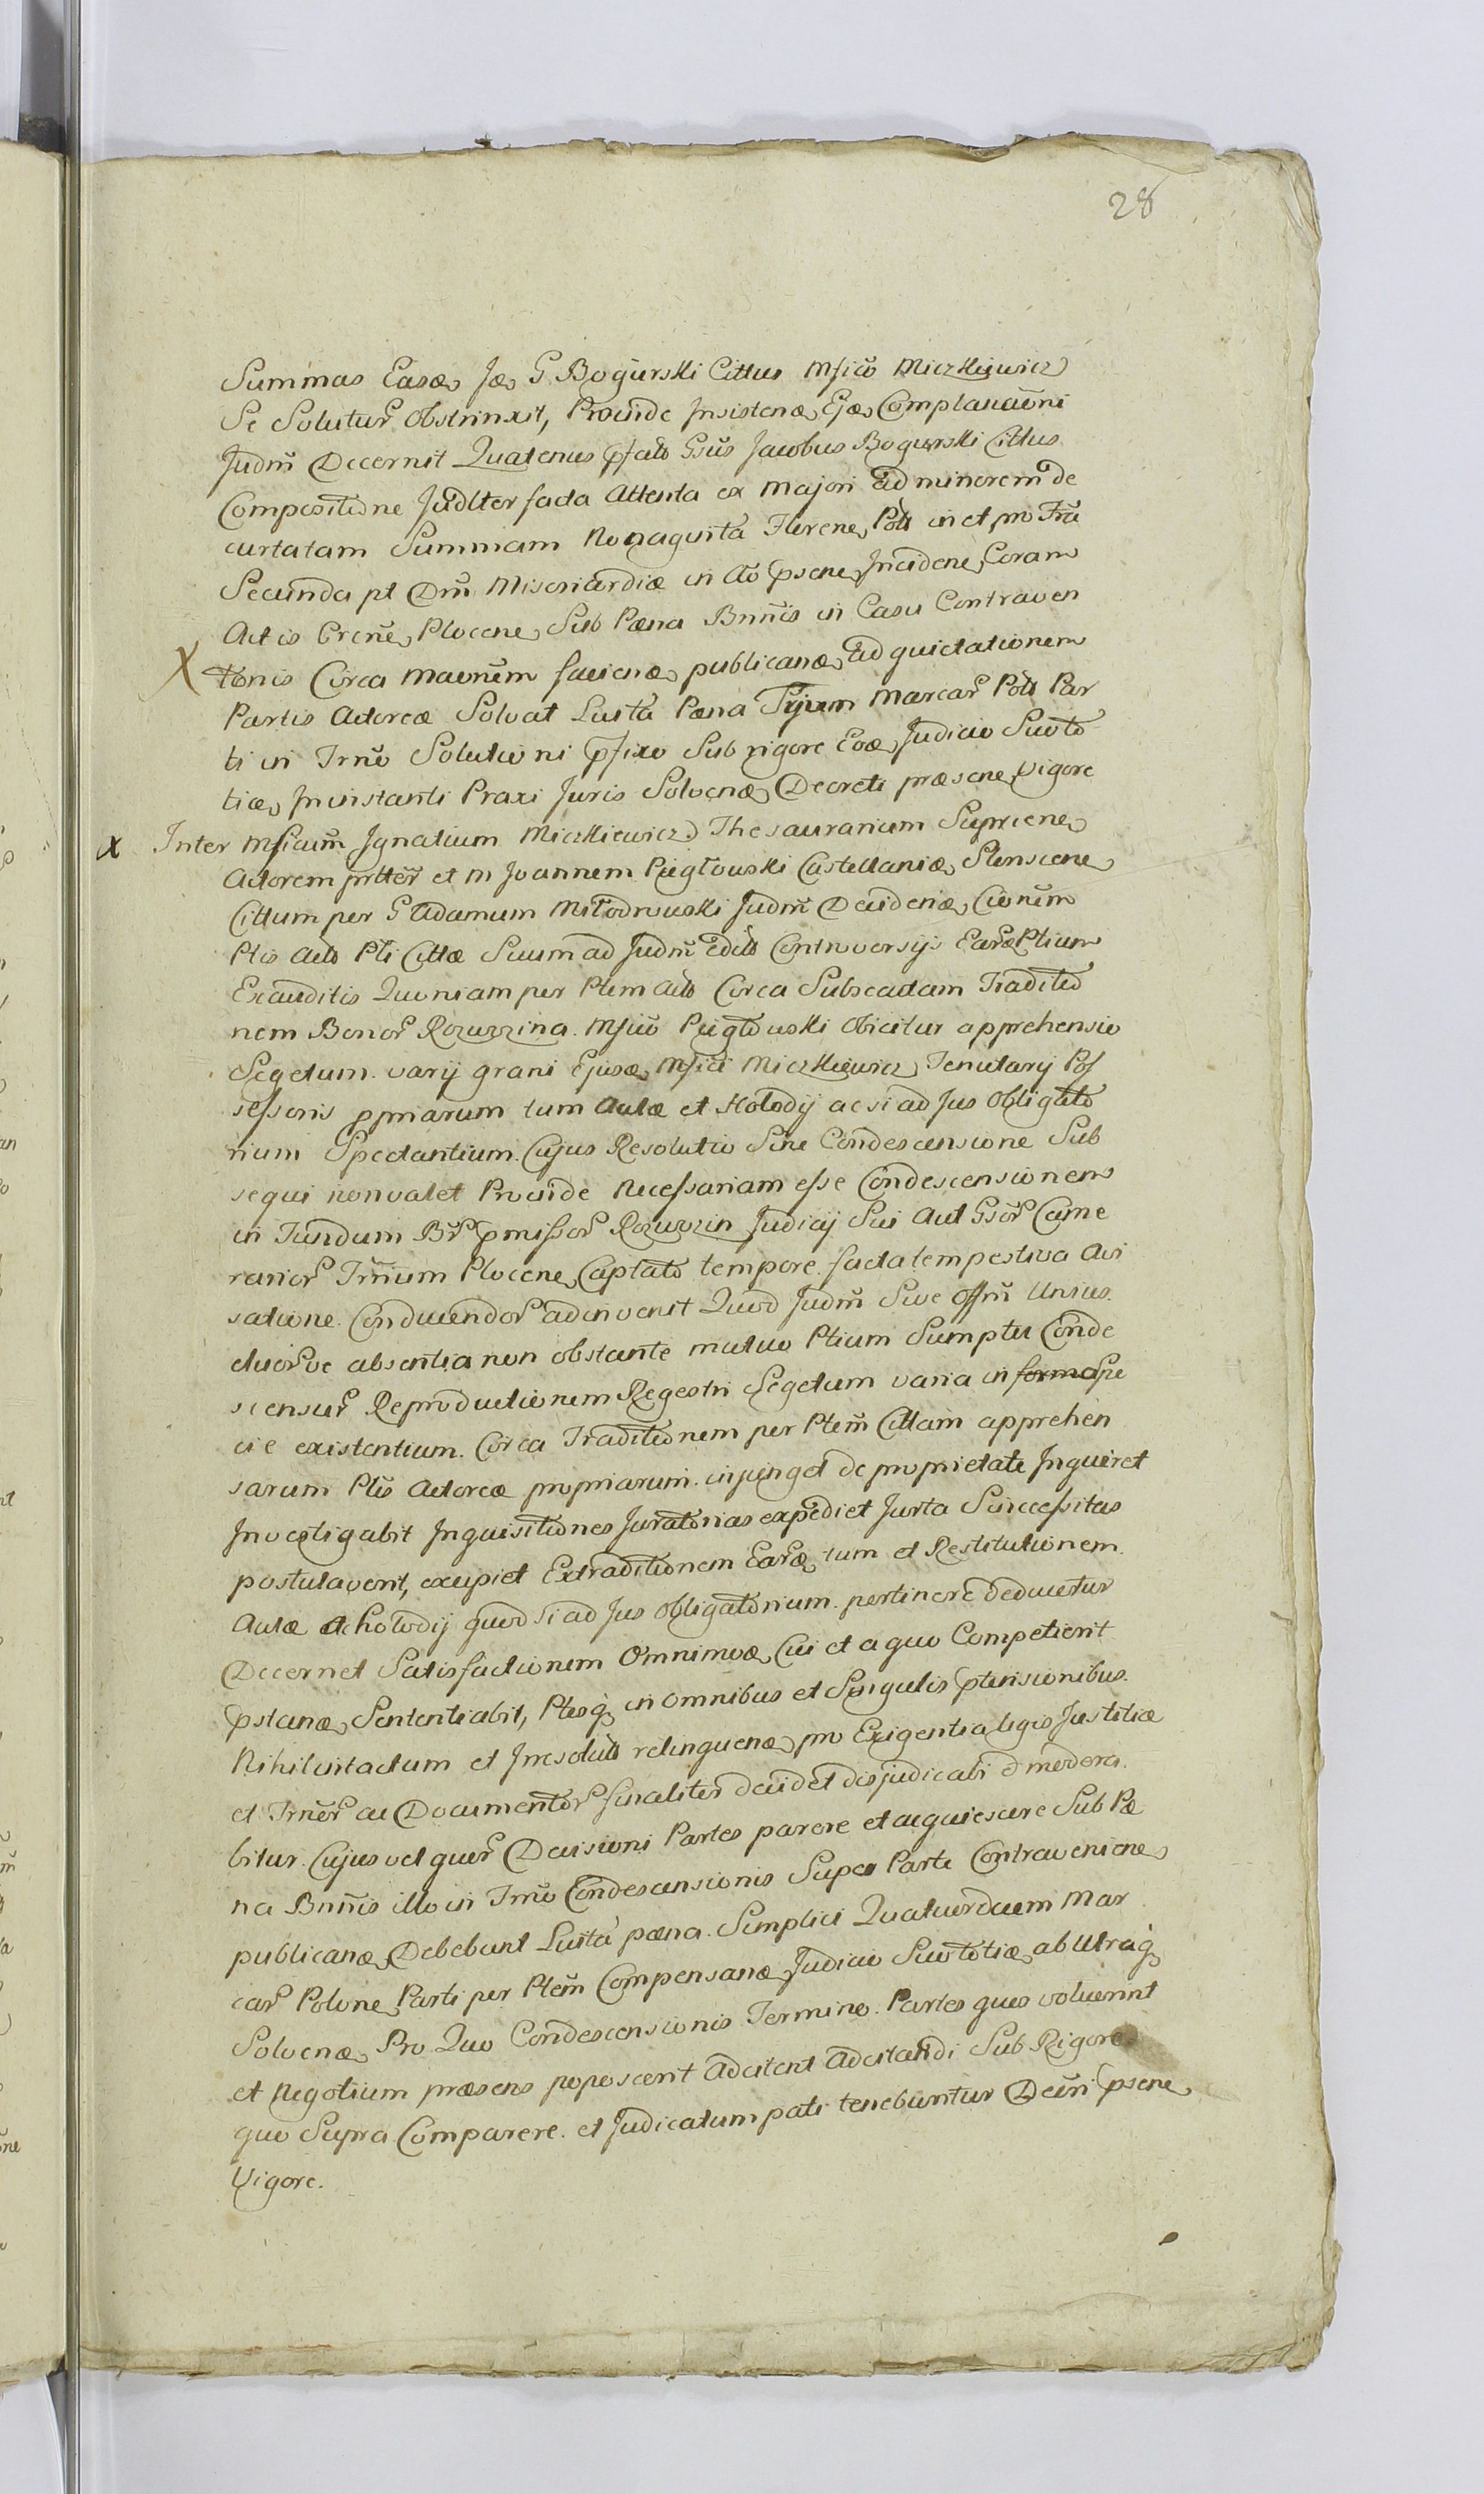 28
Summas Easd Je G Bogurski Cittus Mficũ Miczkiewicz
Se Soluturũ Obstrinxit, Proinde Insistend Ejusd Complanãoni
Judm̃ Decernit Quatenus pfato Gsũs Jacobus Bogurski Cittus
Compositione Judlter facta Attenta ex majori ad minorem de
curtatam Summam Nonaguita Florene, Poło in et pro Fra
Secunda pt Dm̃ Misericardiæ in Ao psene, Incidene, Coram
Actis Crene, Plocene, Sub Pæna Bnñis in Casu Contraven
X tionis Circa maenẽm faciend publicand ad quietationem
Partis Actoreæ Solvat Luita Pæna Trium Marcar Poło Par
ti in Trnõ Solutioni pfixo Sub rigore Eod Judicio Suoto
tiæ, In instanti Praxi Juris Solvend Decreti præsene, Vigore
x Inter Mficum̃ Ignatium Miczkiewicz Thesaurarium Supriene,
Actorem prtter et M Joannem Piegłowski Castellanid Slonscene,
Cittum per G Adamum Młodowski Judm̃ Decidend Cionẽm
Ptis Acto Pti Cittæ Suum ad Judm̃ Edito Controversijs Eard Ptium
Exauditis Quoniam per Ptem Acto Circa Subseadam Traditio
nem Bonor Rozwozina. Mficũ Piegłowski obicitur apprehensio
Segetum varij grani Ejusd Mfici Miczkiewicz Tenutarij Pos
sessoris ppriarum tum Aulæ et Holodij ac si ad Jus Obligato
rium Spectantium. Cujus Resolutio Sine Condescensione Sub
sequi non valet Proinde Necessariam esse Condescensionem
in Fundum Br pmissor Rozwozin Judicij Sui Aut Gsor Came
rarior Trñium Plocene, Captato tempore facta tempestiva Avi
satione. Conducendor adinvenit Quod Judm̃ Sive Offm̃ Unius
duorve absentia non obstante mutuo Ptium Sumptu Conde
scensur Reproductionem Regestri Segetum varia in forma Spe
cie existentium. Circa Traditionem per Ptem̃ Cittam apprehen
sarum Ptis Actoreæ propriarum injunget de proprietate Inquiret
Investigabit Inquisitiones Juratorias expediet Juxta Successitas
postulaverit, excipiet Extraditionem Eard tum et Restitutionem
Aulæ ac holodij quod si ad Jus Obligatorium pertinere deducetur
Decernet Satisfactionem Omnimod Cui et a quo Competierit
pstand Sententiabit, Ptesq in omnibus et Singulis ptensionibus.
Nihil intactum et Irresolutũ relinquend pro Exigentia legis Justitiæ
et Trnor ac Documentor finaliter decidet disjudicabit modera
bitur Cujus vel quor Decisioni Partes parere et acquiescere Sub Pæ
na Bnñis illo in Trno Condescensionis Super Parte Contraveniene,
publicand Debebunt Luita pæna. Simplici Quatuordecem Mar
car Polone, Parti per Ptem̃ Compensand Judicio Suototiæ ab Utraq
Solvend Pro Quo Condescensionis Termino. Partes quos voluerint
et Negotium præsens poposcerit Adcitent Adcitandi Sub Rigore
quo Supra Comparere et Judicatum pati tenebuntur Decri psene,
Vigore.